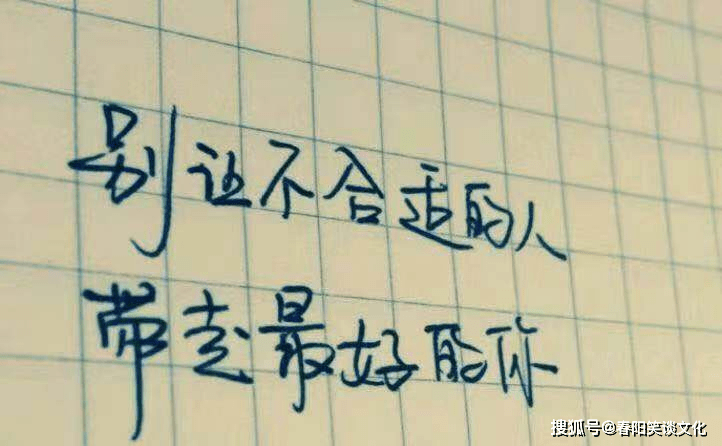 别让不合适的人
带走最好的你
搜狐号@春阳笑谈文化